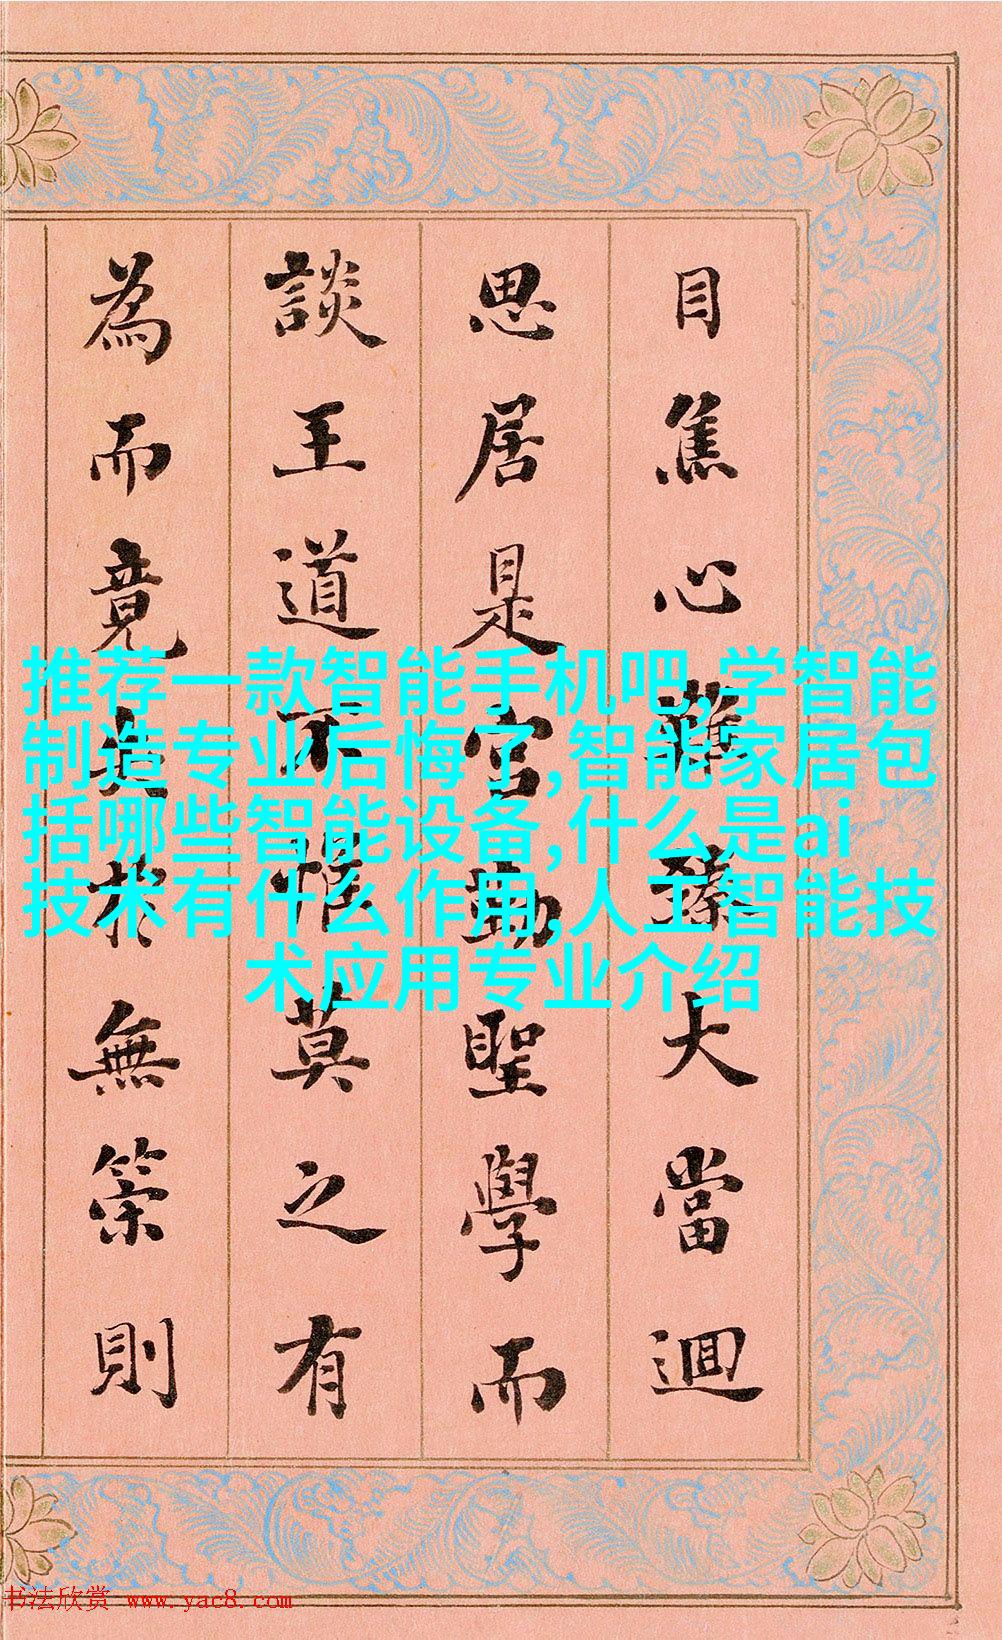 目焦心臻大當迴
思居是宮勤聖學而
談王道不惟莫之有
為而竟於無筞則
推荐一款智能手机吧,学智能
制造专业后悔了,智能家居包
括哪些智能设备,什么是ai
技术有什么作用,人工智能技
术应用专业介绍
书法欣赏 www.yac8.com